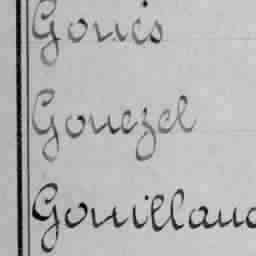 Gouès
Gouezel
Gouilland